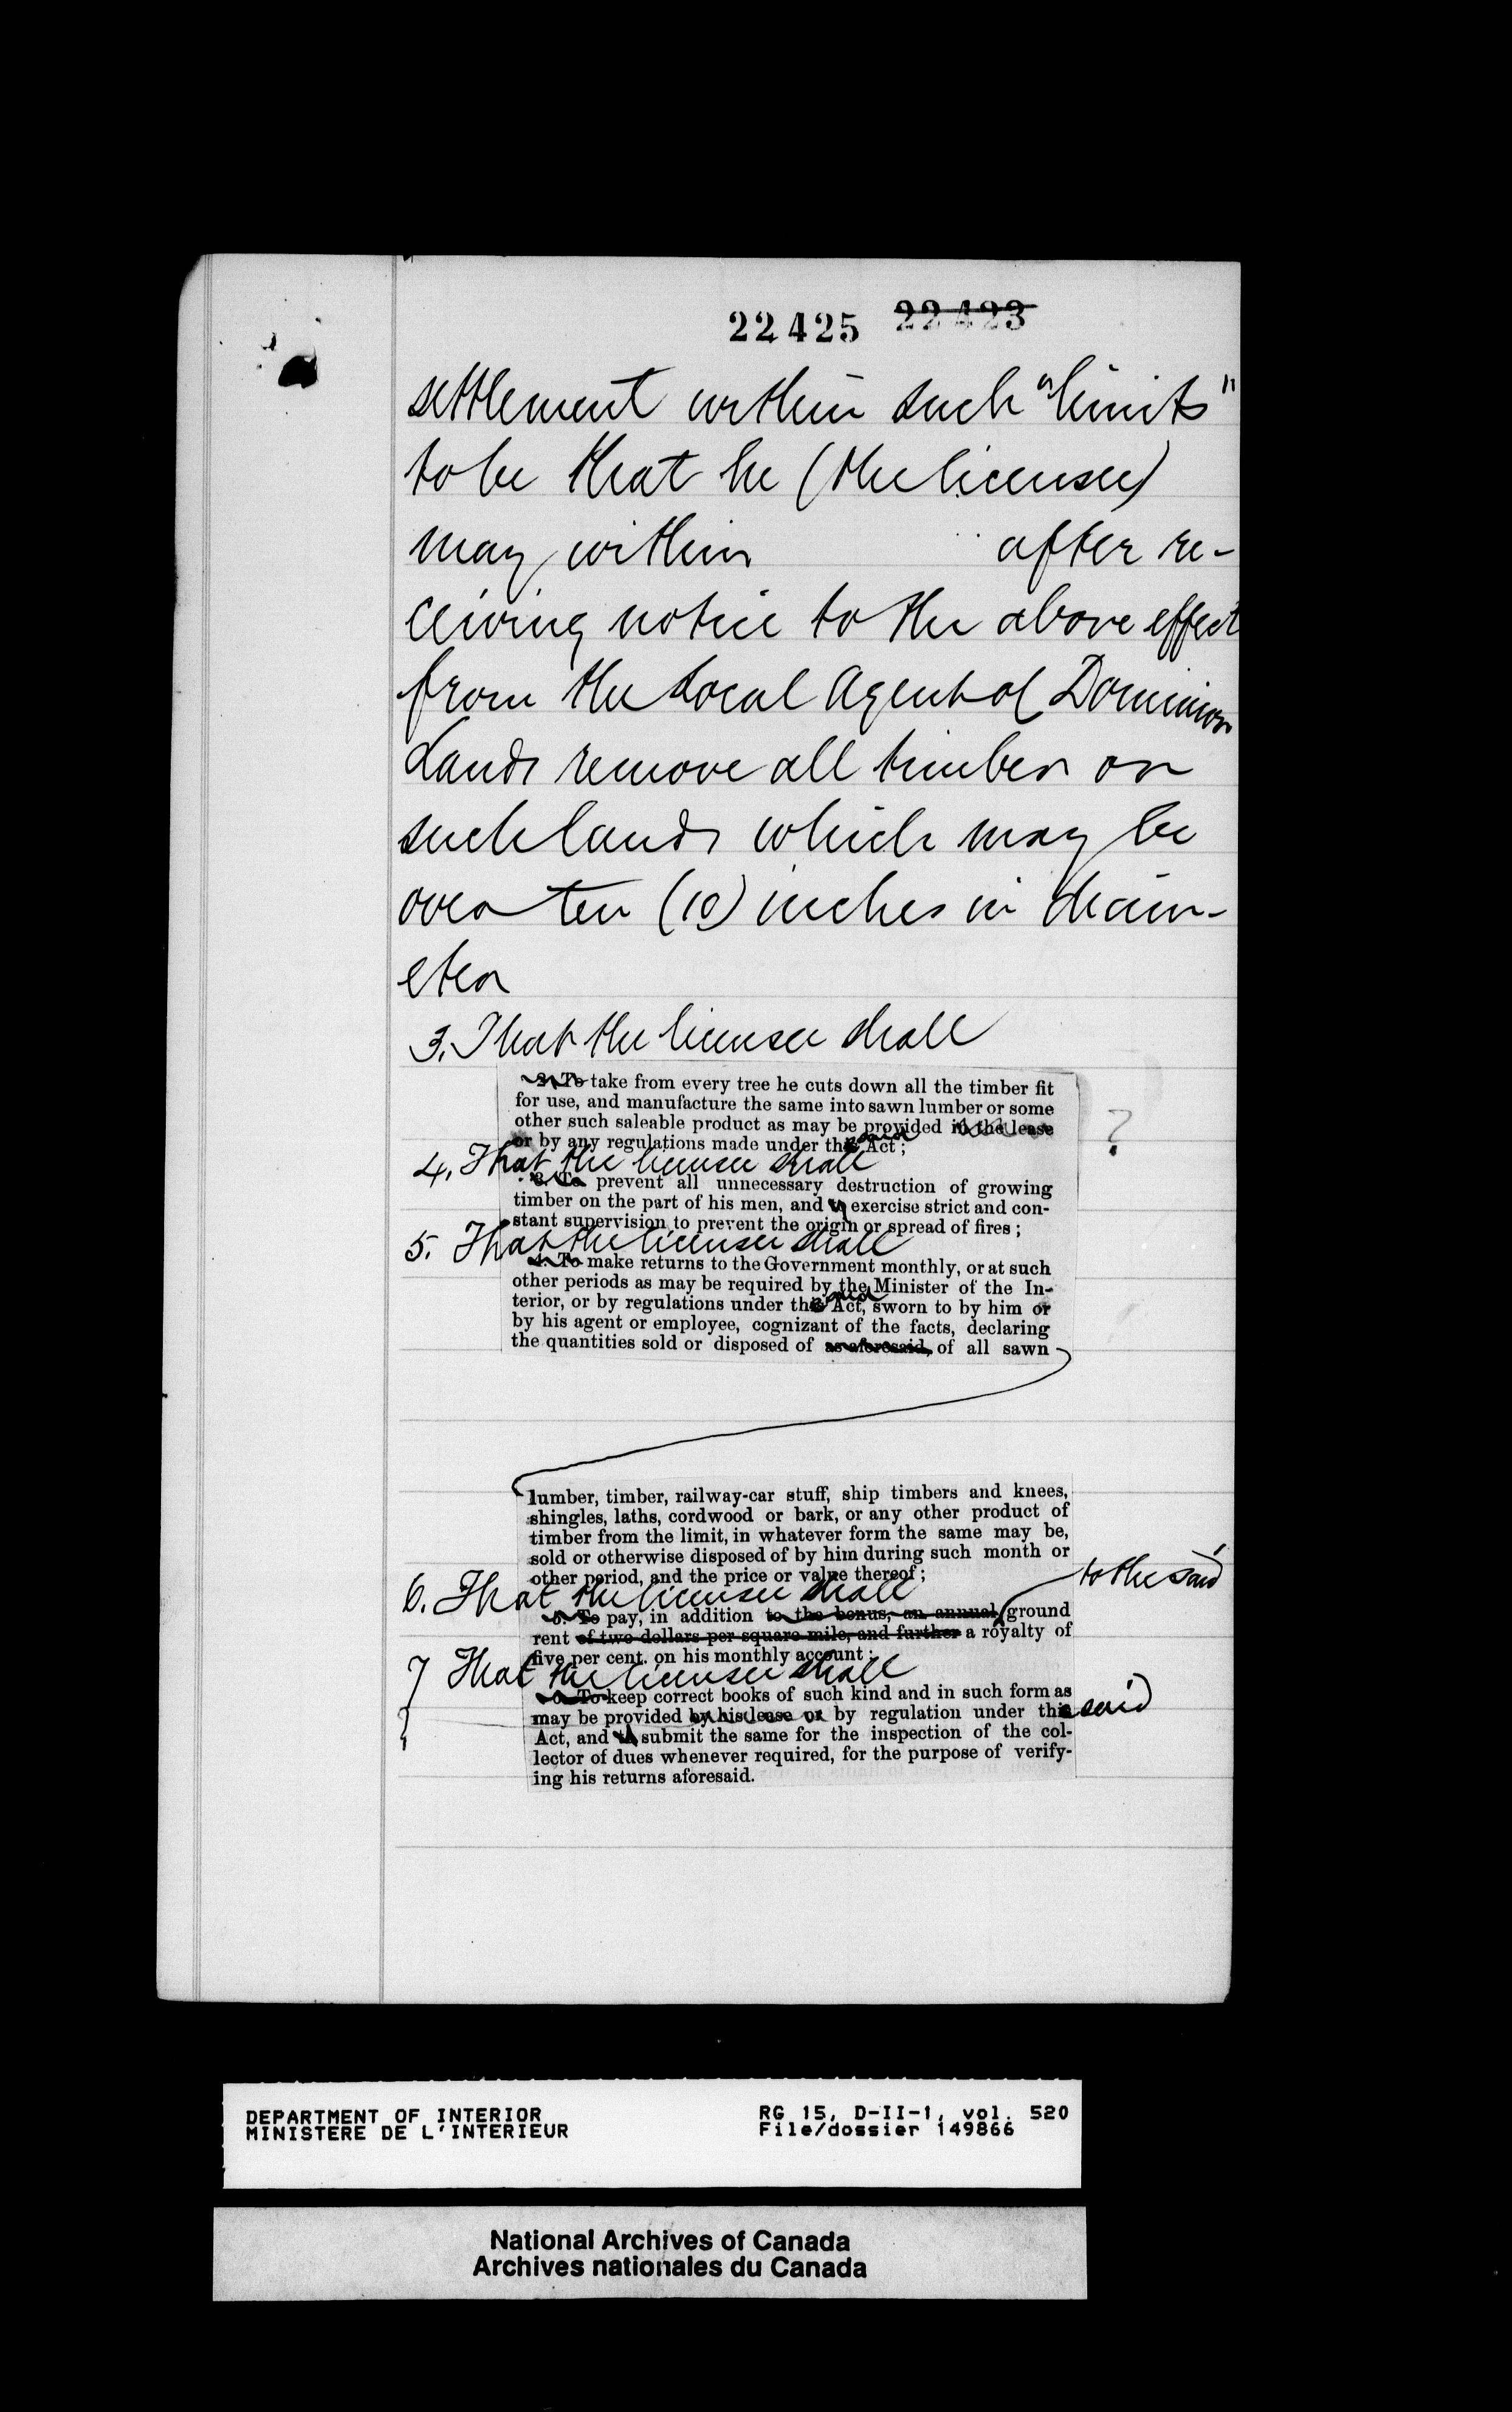 22425 22423
settlement within such "limits"
to be that he (the licensee)
may within after re-
ceiving notice to the above effect
from the Local Agent of Dominion
Lands remove all timber on
such lands which may be
over ten (10) inches in diam-
eter
3. That the licensee shall
2. To take from every tree he cuts down all the timber fit
for use, and manufacture the same into sawn lumber or some
other such saleable product as may be provided in the lease
or by any regulations made under the said Act;
?
4. That the licensee shall
3. To prevent all unnecessary destruction of growing
timber on the part of his men, and to exercise strict and con-
stant supervision to prevent the origin or spread of fires;
5. That the licensee shall
4. To make returns to the Government monthly, or at such
other periods as may be required by the Minister of the In-
terior, or by regulations under the said Act, sworn to by him or
by his agent or employee, cognizant of the facts, declaring
the quantities sold or disposed of as aforesaid, of all sawn
lumber, timber, railway-car stuff, ship timbers and knees,
shingles, laths, cordwood or bark, or any other product of
timber from the limit, in whatever form the same may be,
sold or otherwise disposed of by him during such month or
other period, and the price or value thereof;
6. That the licensee shall
to the said
5. To pay, in addition to the bonus, an annual ground
rent of two dollars per square mile, and further a royalty of
five per cent. on his monthly account;
7 That the licensee shall
6. To keep correct books of such kind and in such form as
may be provided by his lease or by regulation under the said
Act, and to submit the same for the inspection of the col-
lector of dues whenever required, for the purpose of verify-
ing his returns aforesaid.
DEPARTMENT OF INTERIOR
MINISTERE DE L'INTERIEUR
RG 15, D-II-1, vol. 520
File/dossier 149866
National Archives of Canada
Archives nationales du Canada